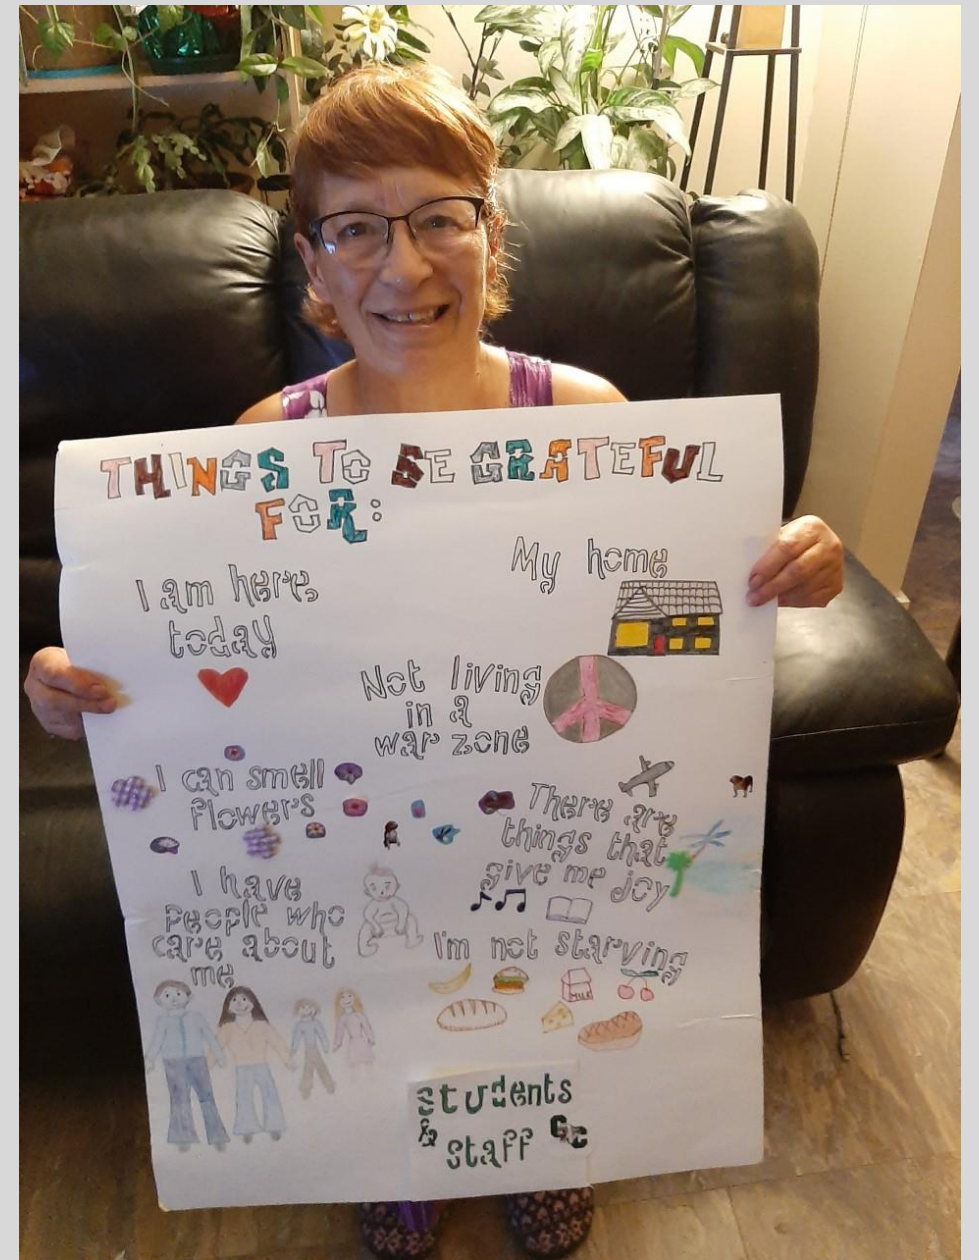 THINGS TO BE GRATEFUL
FOR:
My home
I am here
today
Not living
in a
war zone
I can smell
flowers
There are
things that
give me joy
I have
people who
care about
me
I'm not starving
MILK
Students
& Staff GC